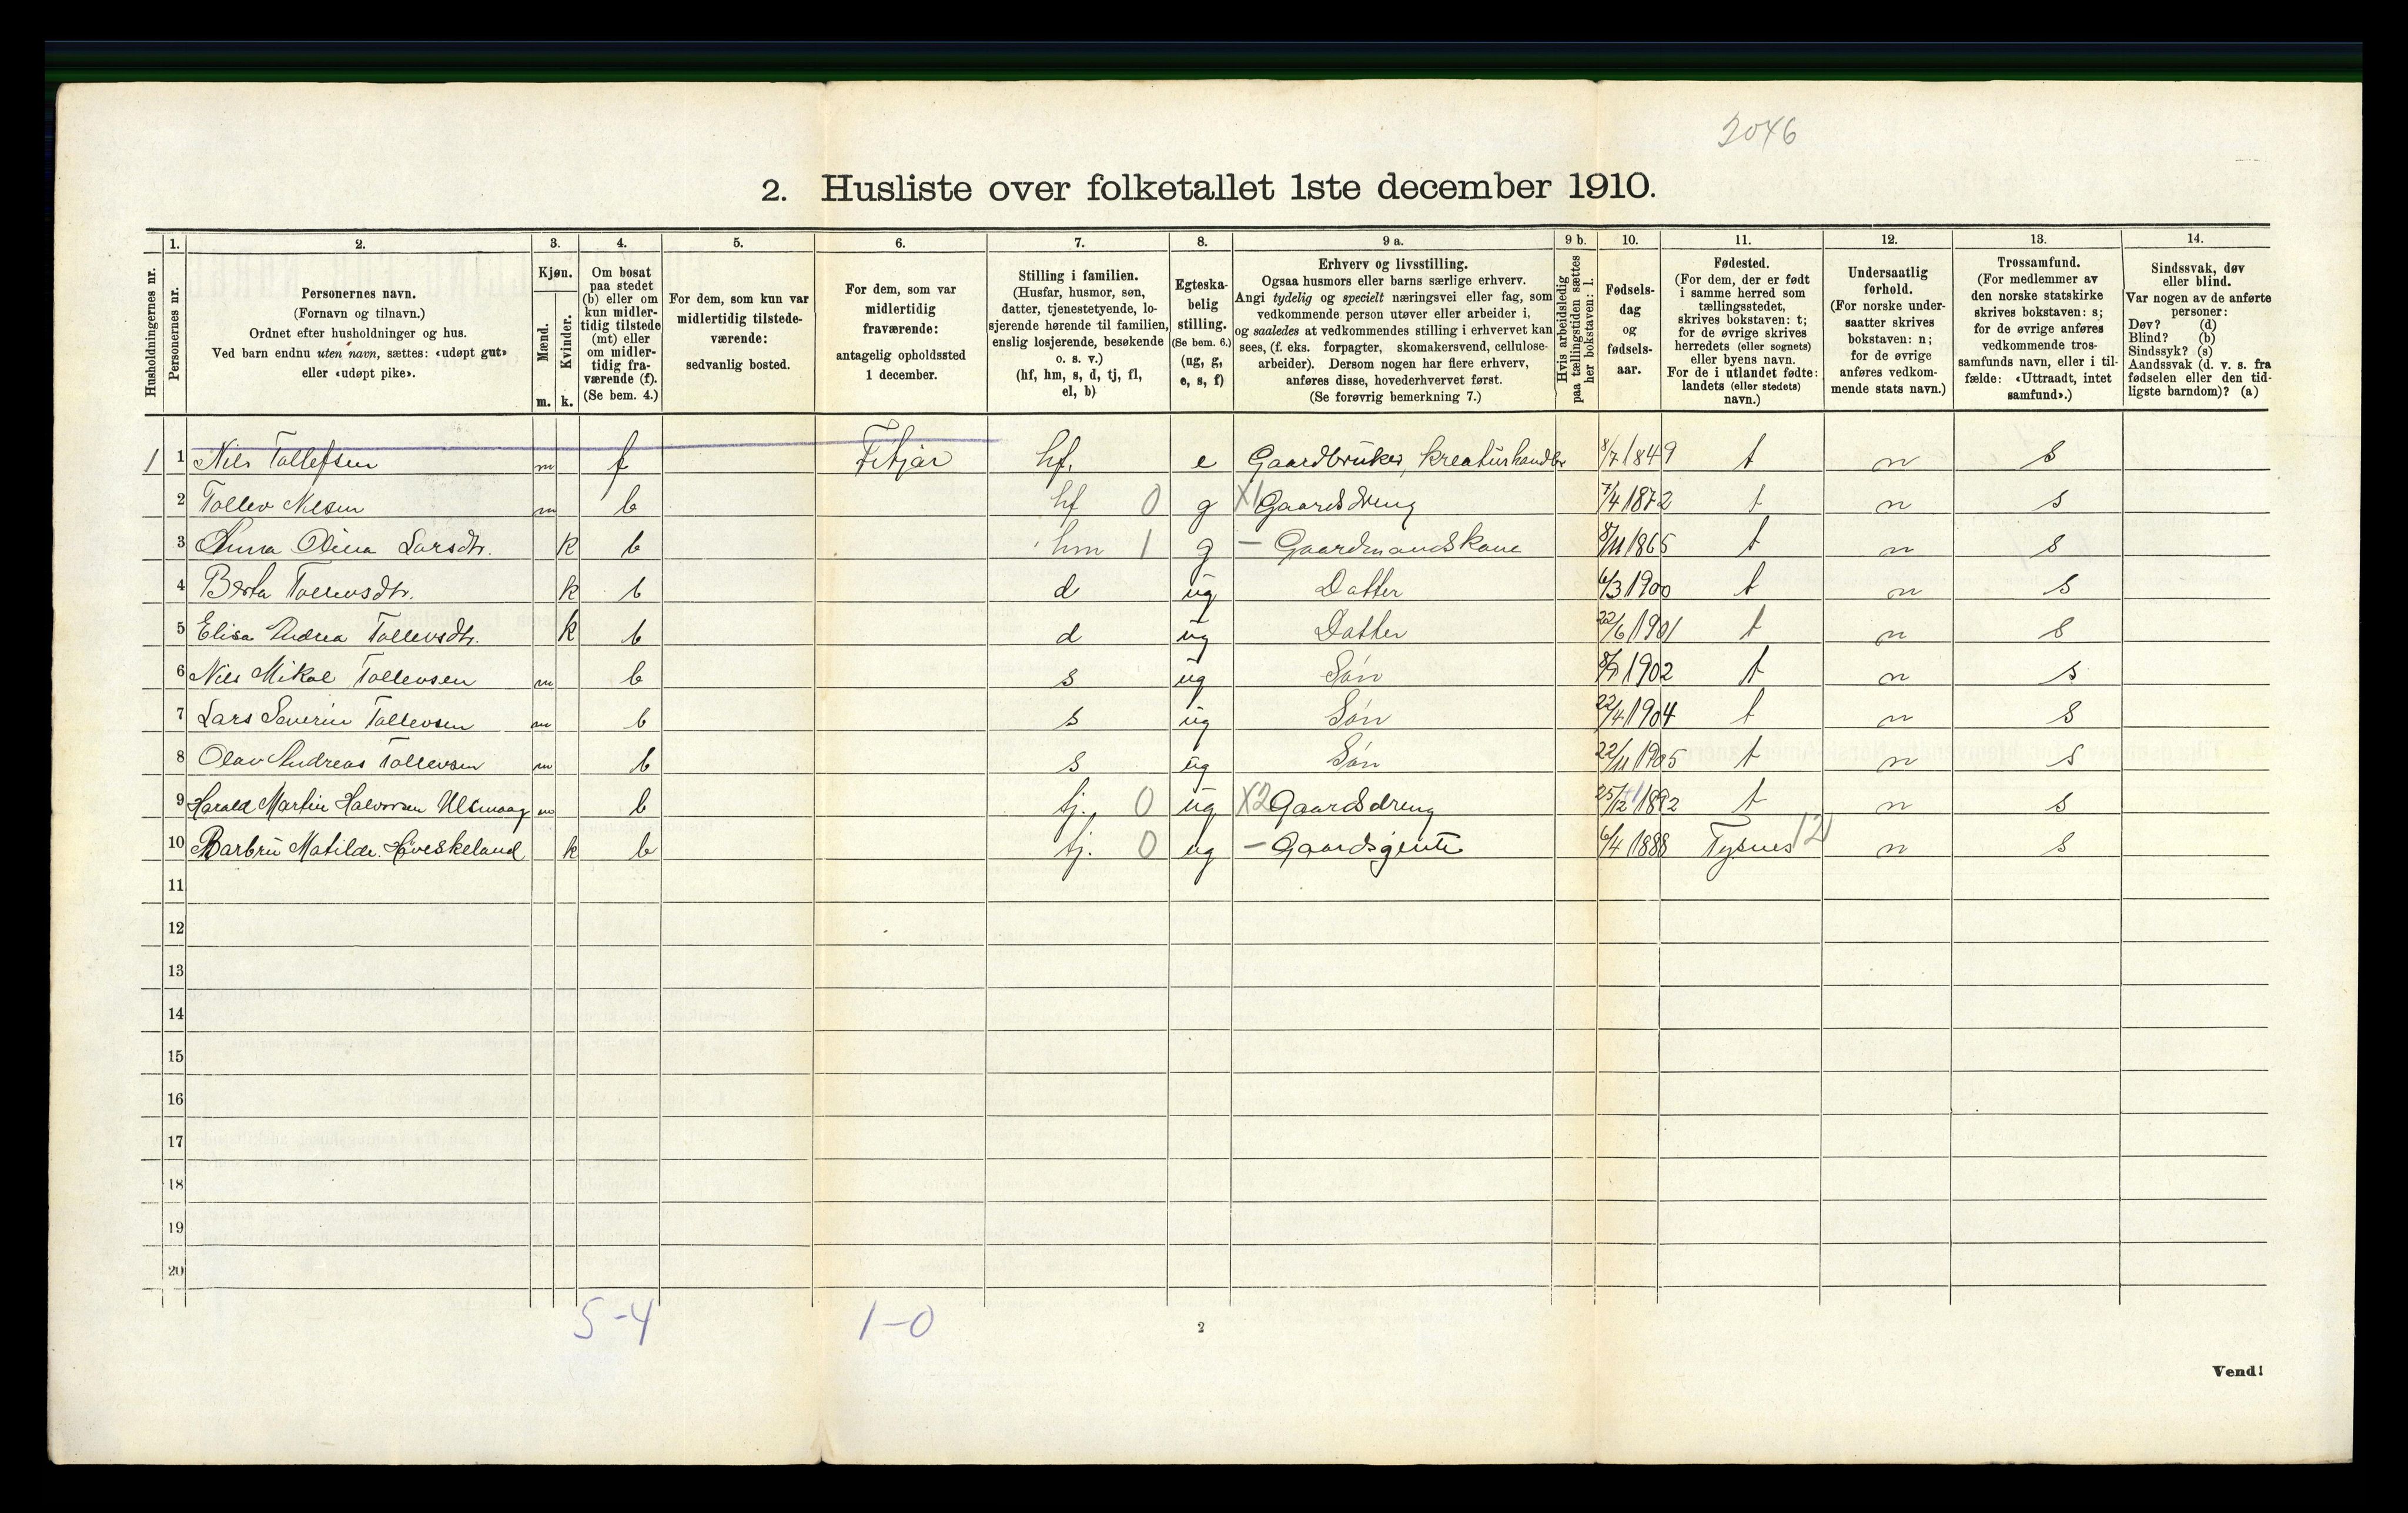 2046
2. Husliste over folketallet 1ste december 1910.
1. 2. 3. 4. 5. 6. 7. 8. 9 a. 9 b. 10. 11. 12. 13. 14.
Husholdningernes nr.
Personernes nr.
Personernes navn.
(Fornavn og tilnavn.)
Ordnet efter husholdninger og hus.
Ved barn endnu uten navn, sættes: «udøpt gut»
eller «udøpt pike».
Kjøn.
Mænd.
Kvinder.
m. k.
Om bosat
paa stedet
(b) eller om
kun midler-
tidig tilstede
(mt) eller
om midler-
tidig fra-
værende (f).
(Se bem. 4.)
For dem, som kun var
midlertidig tilstede-
værende:
sedvanlig bosted.
For dem, som var
midlertidig
fraværende:
antagelig opholdssted
1 december.
Stilling i familien.
(Husfar, husmor, søn,
datter, tjenestetyende, lo-
sjerende hørende til familien,
enslig losjerende, besøkende
o. s. v.)
(hf, hm, s, d, tj, fl,
el, b)
Egteska-
belig
stilling.
(Se bem. 6.)
(ug, g,
e, s, f)
Erhverv og livsstilling.
Ogsaa husmors eller barns særlige erhverv.
Angi tydelig og specielt næringsvei eller fag, som
vedkommende person utøver eller arbeider i,
og saaledes at vedkommendes stilling i erhvervet kan
sees, (f. eks. forpagter, skomakersvend, cellulose-
arbeider). Dersom nogen har flere erhverv,
anføres disse, hovederhvervet først.
(Se forøvrig bemerkning 7.)
Hvis arbeidsledig
paa tællingstiden sættes
her bokstaven: l.
Fødsels-
dag
og
fødsels-
aar.
Fødested.
(For dem, der er født
i samme herred som
tællingsstedet,
skrives bokstaven: t;
for de øvrige skrives
herredets (eller sognets)
eller byens navn.
For de i utlandet fødte:
landets (eller stedets)
navn.)
Undersaatlig
forhold.
(For norske under-
saatter skrives
bokstaven: n;
for de øvrige
anføres vedkom-
mende stats navn.)
Trossamfund.
(For medlemmer av
den norske statskirke
skrives bokstaven: s;
for de øvrige anføres
vedkommende tros-
samfunds navn, eller i til-
fælde: «Uttraadt, intet
samfund».)
Sindssvak, døv
eller blind.
Var nogen av de anførte
personer:
Døv? (d)
Blind? (b)
Sindssyk? (s)
Aandssvak (d. v. s. fra
fødselen eller den tid-
ligste barndom)? (a)
1 1 Nils Tollefsen m f Fitjar hf. e Gaardbruker, kreaturhandler 8/7 1849 t n s
2 Tollev Nilsen m b hf 0 g X1 Gaardsdreng 7/4 1872 t n s
3 Anna Olina Larsdtr. k b hm 1 g - Gaardmandskone 8/11 1865 t n s
4 Berta Tollevsdtr. k b d ug Datter 6/3 1900 t n s
5 Elisa Andrea Tollevsdtr. k b d ug Datter 22/6 1901 t n s
6 Nils Mikal Tollevsen m b s ug Søn 1902 t n s
7 Lars Severin Tollevsen m b s ug Søn 22/4 1904 t n s
8 Olav Andreas Tollevsen m b s ug Søn 22/11 1905 t n s
9 Harald Martin Halvorsen m b tj. 0 ug X2 Gaardsdreng 25/12 1892 t n s
10 Barbru Matilde Høveskeland k b tj. 0 ug - Gaardsgjente 6/4 1888 Tysnes 12 n s
11
12
13
14
15
16
17
18
19
20
5-4 1-0
2
Vend!